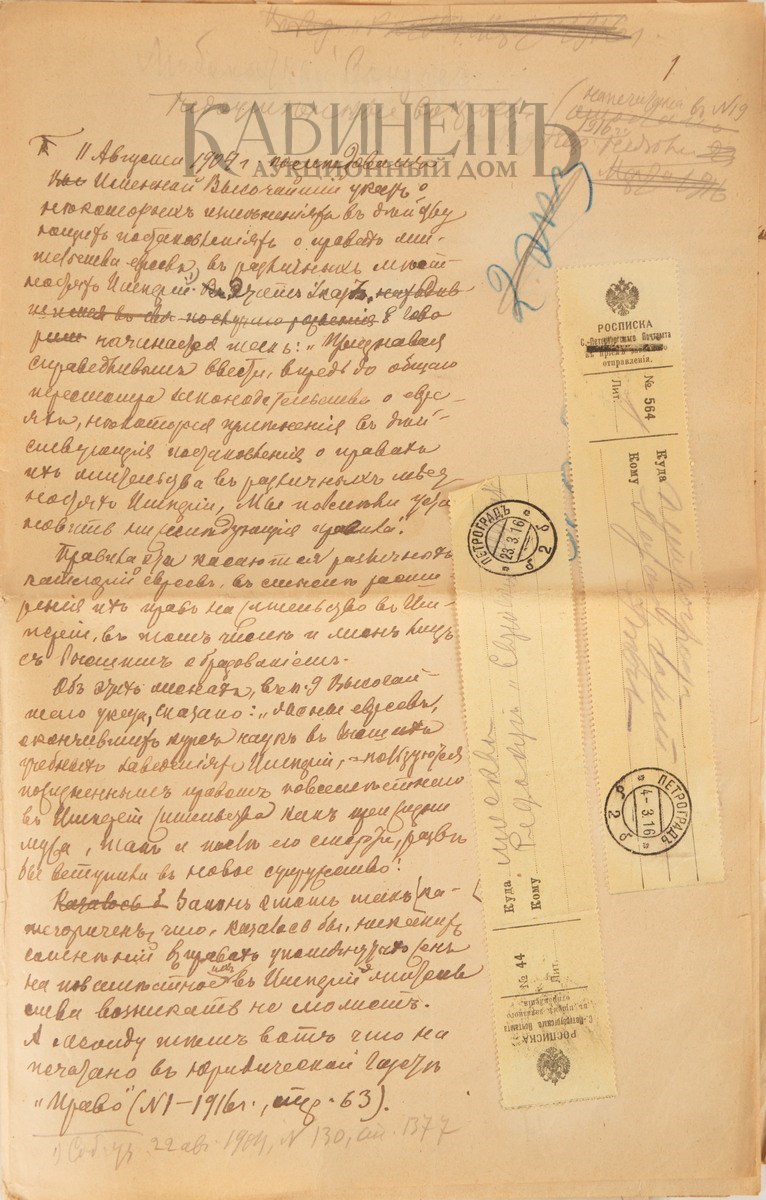 1
КАБИНЕТЪ
АУКЦИОННЫЙ ДОМ
напечатана въ №19
1916 г.
11 Августа 1904 г.
Именной Высочайшій указъ о
нѣкоторыхъ измѣненіяхъ въ дѣйству
ющихъ постановленіяхъ о правахъ жи-
тельства евреевъ въ различныхъ мѣст
ностяхъ Имперіи. Этотъ Указъ
начинается такъ: "Признавая
справедливымъ ввести, впредь до общаго
пересмотра законодательства о евре-
яхъ, нѣкоторыя измѣненія въ дѣй-
ствующія постановленія о правахъ
ихъ жительства въ различныхъ мѣст
ностяхъ Имперіи, Мы повелѣли уста
новить нижеслѣдующія правила".
Правила эти касаются различныхъ
категорій евреевъ, въ смыслѣ расши
ренія ихъ правъ на жительство въ Им-
періи, въ томъ числѣ и женъ лицъ
съ высшимъ образованіемъ.
Объ этихъ женахъ, въ п. 9 Высочай-
шаго указа, сказано: "Жены евреевъ,
окончившихъ курсъ наукъ въ высшихъ
учебныхъ заведеніяхъ Имперіи, пользуются
правомъ повсемѣстнаго
въ Имперіи жительства какъ при жизни
мужа, такъ и послѣ его смерти, развѣ
бы вступили въ новое супружество".
Законъ этотъ такъ ка-
тегориченъ, что, казалось бы, никакихъ
сомнѣній въ правахъ упомянутыхъ женъ
на повсемѣстное въ Имперіи житель
ства возникать не можетъ.
А между тѣмъ вотъ что на
печатано въ юридической Газетѣ
"Право" (№1-1916 г., стр. 63).
1) Собр. уз. 22 авг. 1904, № 130, ст. 1377
РОСПИСКА
С.-Петербургскаго Почтамта
въ пріемѣ заказного
отправленія.
№ 564
Лит.
Куда
Кому
ПЕТРОГРАДЪ
4-3.16
2
ПЕТРОГРАДЪ
23.3.16
2
Куда Москва
Кому Редакціи
№ 44
Лит.
РОСПИСКА
С.-Петербургскаго Почтамта
въ пріемѣ заказного
отправленія.